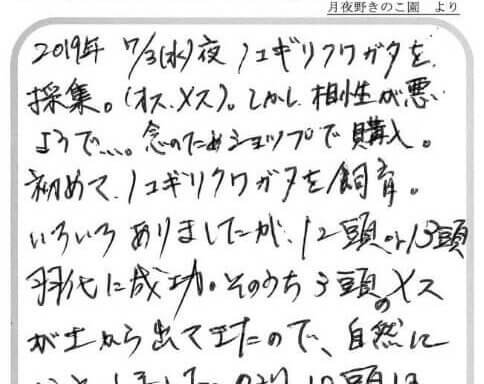 月夜野きのこ園 より
2019年 7/3(水)夜ノコギリクワガタを
採集。(オス、メス)。しかし相性が悪い
ようで…。念のためショップで購入。
初めて、ノコギリクワガタを飼育。
いろいろありましたが、12頭から13頭
羽化に成功。そのうち3頭のメス
が土から出てきたので、自然に